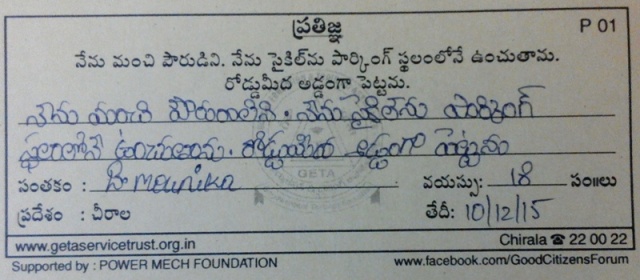 ప్రతిజ్ఞ
P 01
నేను మంచి పౌరుడిని. నేను సైకిల్‌ను పార్కింగ్ స్థలంలోనే ఉంచుతాను.
రోడ్డుమీద అడ్డంగా పెట్టను.
నేను మంచి పౌరురాలిని. నేను సైకిల్‌ను పార్కింగ్
స్థలంలోనే ఉంచుతాను. రోడ్డుమీద అడ్డంగా పెట్టను
GETA
సంతకం : B. mounika వయస్సు: 18 సం॥లు
ప్రదేశం : చీరాల తేదీ: 10/12/15
www.getaservicetrust.org.in Chirala ☎ 22 00 22
Supported by : POWER MECH FOUNDATION www.facebook.com/GoodCitizensForum